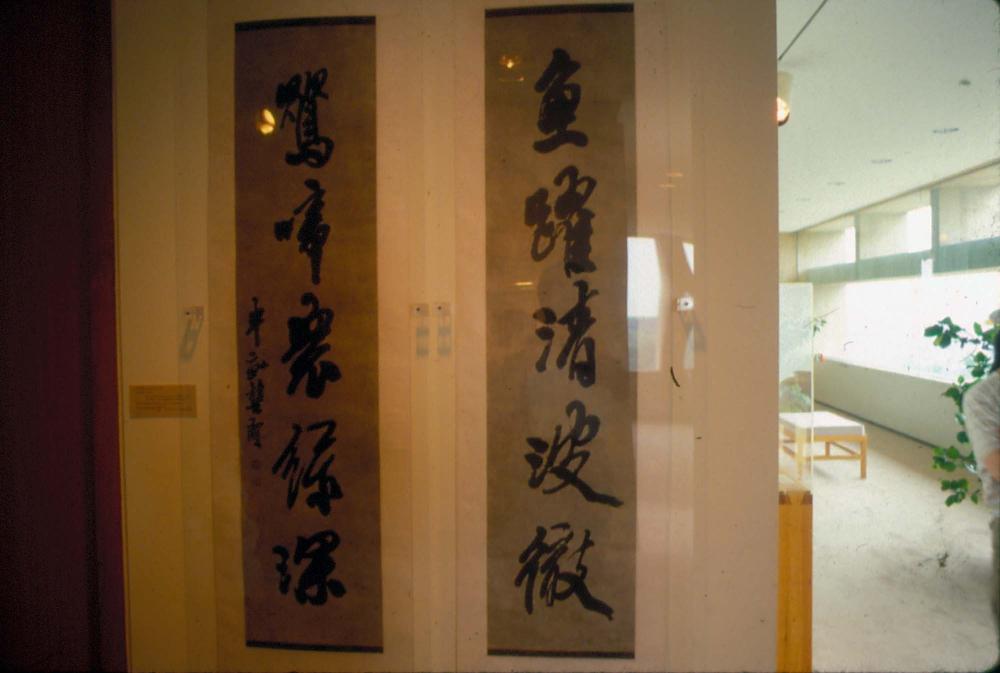 魚躍清波徹
鶯啼衆綠深